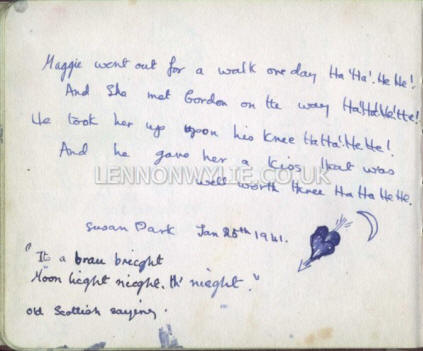 Maggie went out for a walk one day Ha'Ha'. He He!
And She met Gordon on the way Ha!Ha!He!He!
He took her up upon his knee Ha Ha!. He He!
And he gave her a kiss that was
well worth three Ha Ha He He.
LENNONWYLIE.CO.UK
Susan Park Jan 25th 1941.
"It a brau bricght
Moon licght nicght. th' nieght."
old Scottish saying.